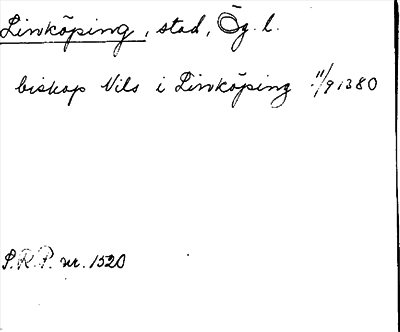 Linköping, stad, Ög. l.
biskop Nils i Linköping 11/9 1380
S.R.P. nr. 1520